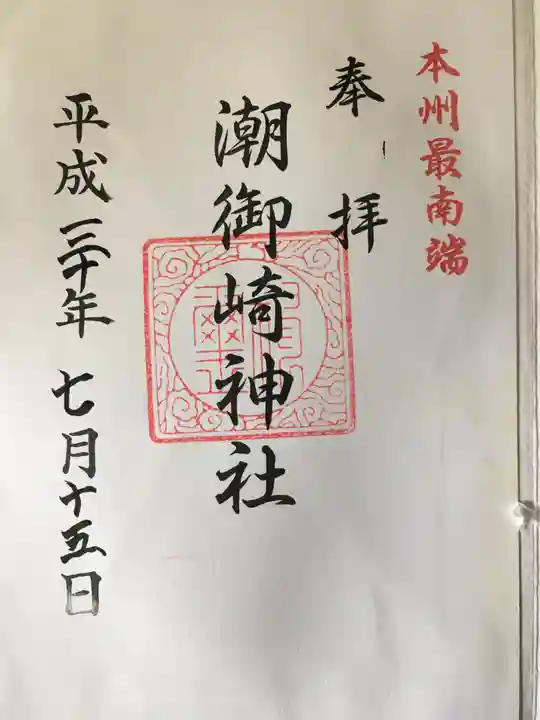 本州最南端
奉拝
潮御崎神社
平成三十年七月十五日